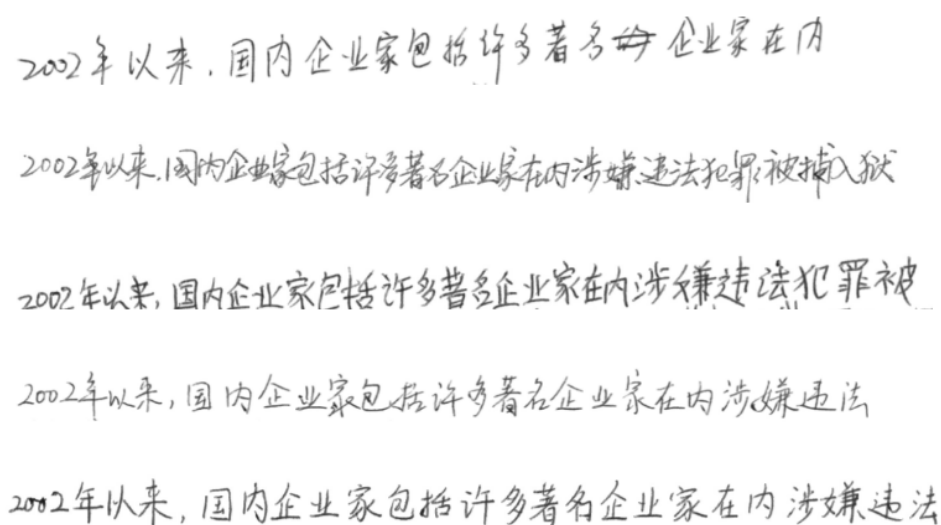 2002年以来，国内企业家包括许多著名企业家在内
2002年以来，国内企业家包括许多著名企业家在内涉嫌违法犯罪被捕入狱
2002年以来，国内企业家包括许多著名企业家在内涉嫌违法犯罪被
2002年以来，国内企业家包括许多著名企业家在内涉嫌违法
2002年以来，国内企业家包括许多著名企业家在内涉嫌违法